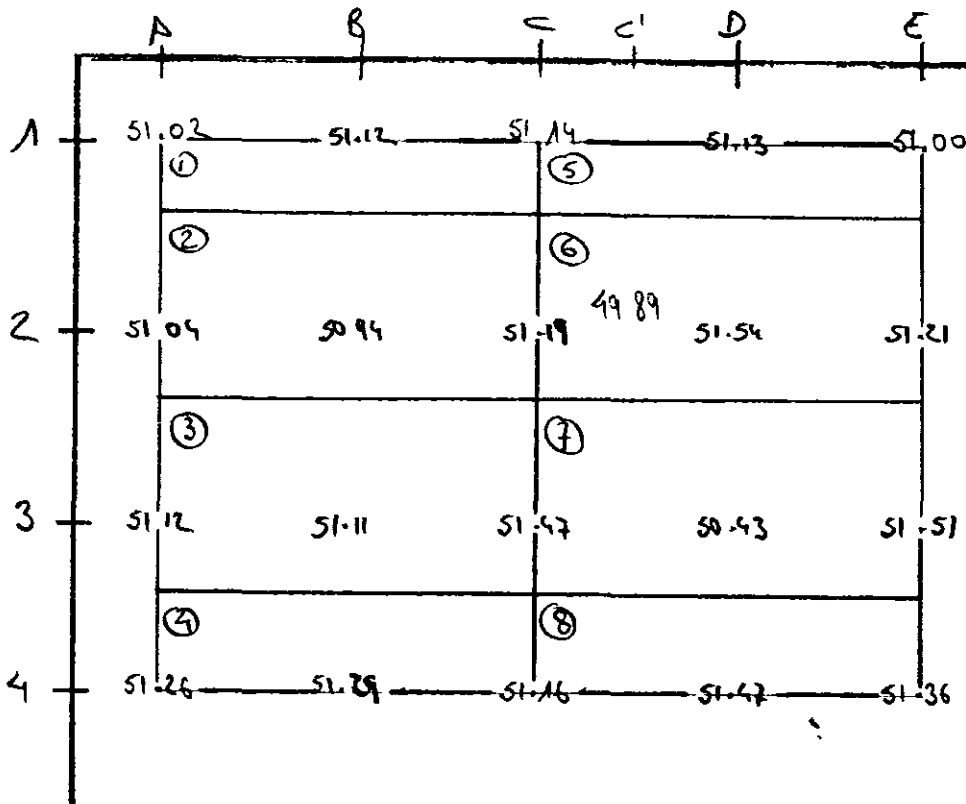 A B C C' D E
1 51.02 51.12 51.14 51.13 51.00
① ⑤
② ⑥
49 89
2 51 04 50 94 51.19 51.54 51.21
③ ⑦
3 51 12 51.11 51.47 50.43 51.51
④ ⑧
4 51.26 51.29 51.16 51.47 51.36